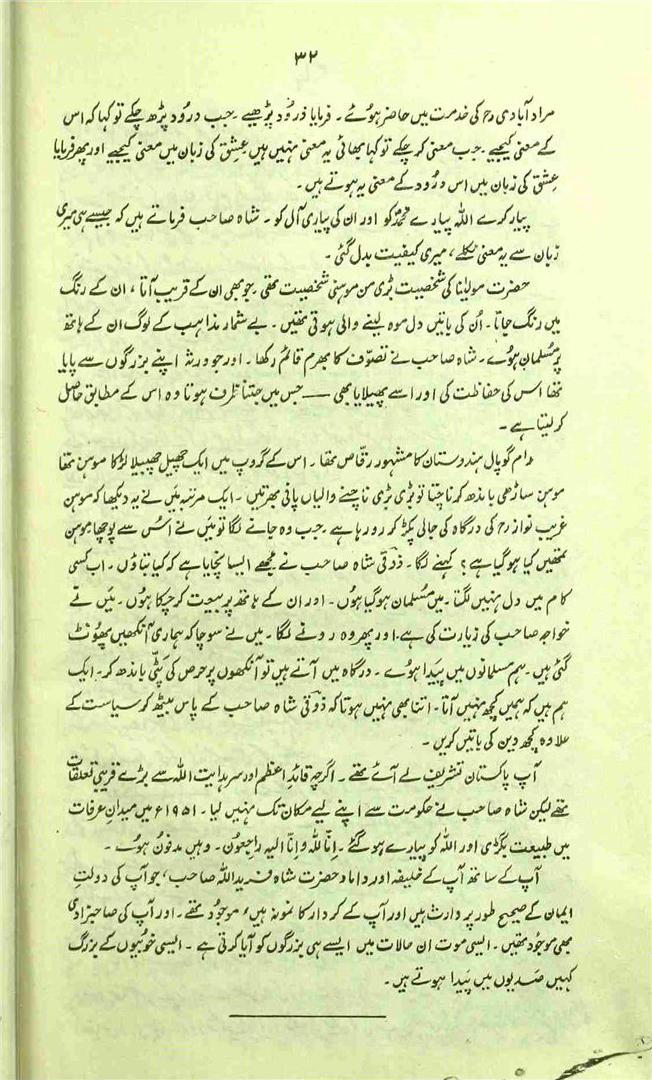 ۳۲
مراد آبادی رح کی خدمت میں حاضر ہوئے ۔ فرمایا درُود پڑھیے ۔ جب درود پڑھ چکے تو کہا کہ اس
کے معنی کیجیے ۔ جب معنی کر چکے تو کہا بھائی یہ معنی نہیں ہیں عشق کی زبان میں معنی کیجیے اور پھر فرمایا
عشق کی زبان میں اس درُود کے معنی یہ ہوتے ہیں ۔
پیار کرے اللہ پیارے محمدؐ کو اور ان کی پیاری آل کو ۔ شاہ صاحب فرماتے ہیں کہ جیسے ہی میری
زبان سے یہ معنی نکلے ، میری کیفیت بدل گئی ۔
حضرت مولانا کی شخصیت بڑی من موہنی شخصیت تھی ۔ جو بھی ان کے قریب آتا ، ان کے رنگ
میں رنگ جاتا ۔ اُن کی باتیں دل موہ لینے والی ہوتی تھیں ۔ بے شمار مذاہب کے لوگ ان کے ہاتھ
پر مُسلمان ہوئے ۔ شاہ صاحب نے تصوّف کا بھرم قائم رکھا ۔ اور جو ورثہ اپنے بزرگوں سے پایا
تھا اس کی حفاظت کی اور اسے پھیلایا بھی —— جس میں جتنا ظرف ہوتا وہ اس کے مطابق حاصل
کر لیتا ہے ۔
رام گوپال ہندوستان کا مشہور رقّاص تھا ۔ اس کے گروپ میں ایک چھیل چھبیلا لڑکا موہن تھا
موہن ساڑھی باندھ کر ناچتا تو بڑی بڑی ناچنے والیاں پانی بھرتیں ۔ ایک مرتبہ میں نے یہ دیکھا کہ موہن
غریب نواز رح کی درگاہ کی جالی پکڑ کر رو رہا ہے ۔ جب وہ جانے لگا تو میں نے اُس سے پوچھا موہن
تمھیں کیا ہو گیا ہے ؟ کہنے لگا ۔ ذوقی شاہ صاحب نے مجھے ایسا نچایا ہے کہ کیا بتاؤں ۔ اب کسی
کام میں دل نہیں لگتا ۔ میں مُسلمان ہو گیا ہوں ۔ اور ان کے ہاتھ پر بیعت کر چکا ہوں ۔ میں نے
خواجہ صاحب کی زیارت کی ہے ۔ اور پھر وہ رونے لگا ۔ میں نے سوچا کہ ہماری آنکھیں پھوٹ
گئی ہیں ۔ ہم مسلمانوں میں پیدا ہوئے ۔ درگاہ میں آتے ہیں تو آنکھوں پر حرص کی پٹّی باندھ کر ۔ ایک
ہم ہیں کہ ہمیں کچھ نہیں آتا ۔ اتنا بھی نہیں ہوتا کہ ذوقی شاہ صاحب کے پاس بیٹھ کر سیاست کے
علاوہ کچھ دین کی باتیں کریں ۔
آپ پاکستان تشریف لے آئے تھے ۔ اگرچہ قائدِ اعظم اور سر ہدایت اللہ سے بڑے قریبی تعلقات
تھے لیکن شاہ صاحب نے حکومت سے اپنے لیے مکان تک نہیں لیا ۔ ۱۹۵۱ء میں میدانِ عرفات
میں طبیعت بگڑی اور اللہ کو پیارے ہو گئے ۔ اِنّا للّٰہ و اِنّا الیہ راجعون ۔ وہیں مدفون ہوئے ۔
آپ کے ساتھ آپ کے خلیفہ اور داماد حضرت شاہ فرید اللہ صاحب ، جو آپ کی دولتِ
ایمان کے صحیح طور پر وارث ہیں اور آپ کے کردار کا نمونہ ہیں ، موجود تھے ۔ اور آپ کی صاحبزادی
بھی موجود تھیں ۔ ایسی موت ان حالات میں ایسے ہی بزرگوں کو آیا کرتی ہے ۔ ایسی خُوبیوں کے بزرگ
کہیں صدیوں میں پیدا ہوتے ہیں ۔